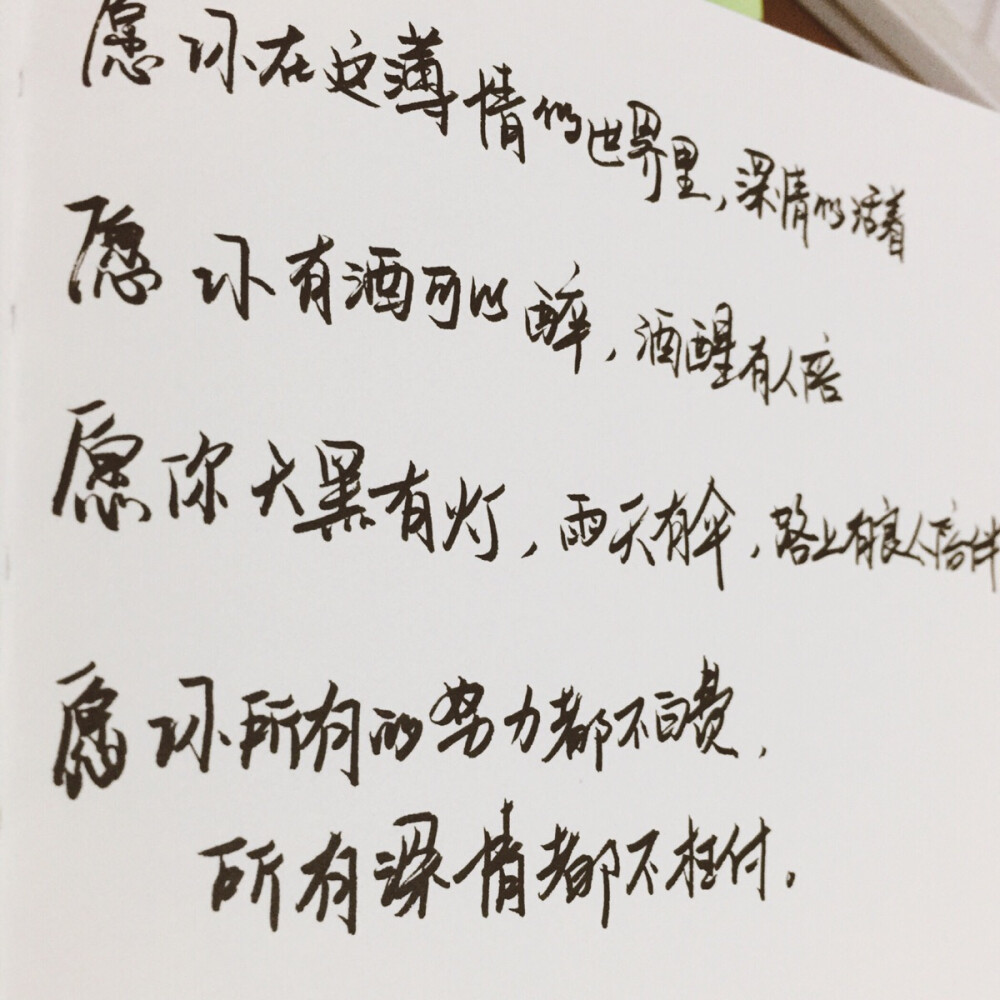 愿你在这薄情的世界里,深情的活着
愿你有酒可以醉,酒醒有人陪
愿你天黑有灯,雨天有伞,路上有良人陪伴
愿你所有的努力都不白费,
所有深情都不枉付。